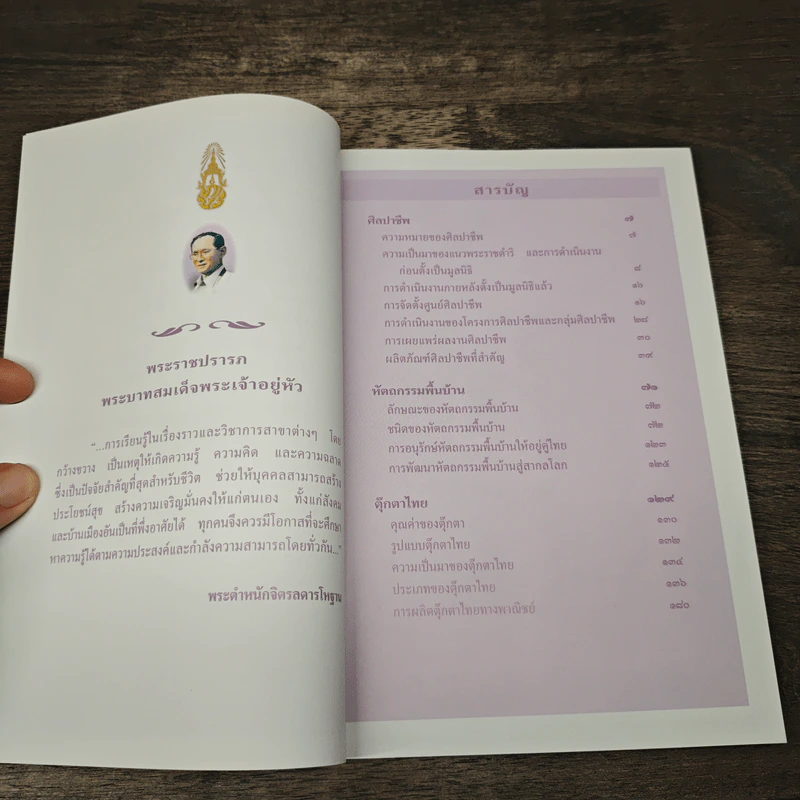 พระราชปรารภ
พระบาทสมเด็จพระเจ้าอยู่หัว
“...การเรียนรู้ในเรื่องราวและวิชาการสาขาต่างๆ โดย
กว้างขวาง เป็นเหตุให้เกิดความรู้ ความคิด และความฉลาด
ซึ่งเป็นปัจจัยสำคัญที่สุดสำหรับชีวิต ช่วยให้บุคคลสามารถสร้าง
ประโยชน์สุข สร้างความเจริญมั่นคงให้แก่ตนเอง ทั้งแก่สังคม
และบ้านเมืองอันเป็นที่พึ่งอาศัยได้ ทุกคนจึงควรมีโอกาสที่จะศึกษา
หาความรู้ได้ตามความประสงค์และกำลังความสามารถโดยทั่วกัน...”
พระตำหนักจิตรลดารโหฐาน
สารบัญ
ศิลปาชีพ ๗
ความหมายของศิลปาชีพ ๗
ความเป็นมาของแนวพระราชดำริ และการดำเนินงาน
ก่อนตั้งเป็นมูลนิธิ ๘
การดำเนินงานภายหลังตั้งเป็นมูลนิธิแล้ว ๑๖
การจัดตั้งศูนย์ศิลปาชีพ ๑๖
การดำเนินงานของโครงการศิลปาชีพและกลุ่มศิลปาชีพ ๒๘
การเผยแพร่ผลงานศิลปาชีพ ๓๐
ผลิตภัณฑ์ศิลปาชีพที่สำคัญ ๓๙
หัตถกรรมพื้นบ้าน ๗๑
ลักษณะของหัตถกรรมพื้นบ้าน ๗๒
ชนิดของหัตถกรรมพื้นบ้าน
การอนุรักษ์หัตถกรรมพื้นบ้านให้อยู่คู่ไทย ๑๒๓
การพัฒนาหัตถกรรมพื้นบ้านสู่สากลโลก ๑๒๕
ตุ๊กตาไทย ๑๒๙
คุณค่าของตุ๊กตา ๑๓๐
รูปแบบตุ๊กตาไทย ๑๓๒
ความเป็นมาของตุ๊กตาไทย ๑๓๔
ประเภทของตุ๊กตาไทย ๑๓๖
การผลิตตุ๊กตาไทยทางพาณิชย์ ๑๘๐